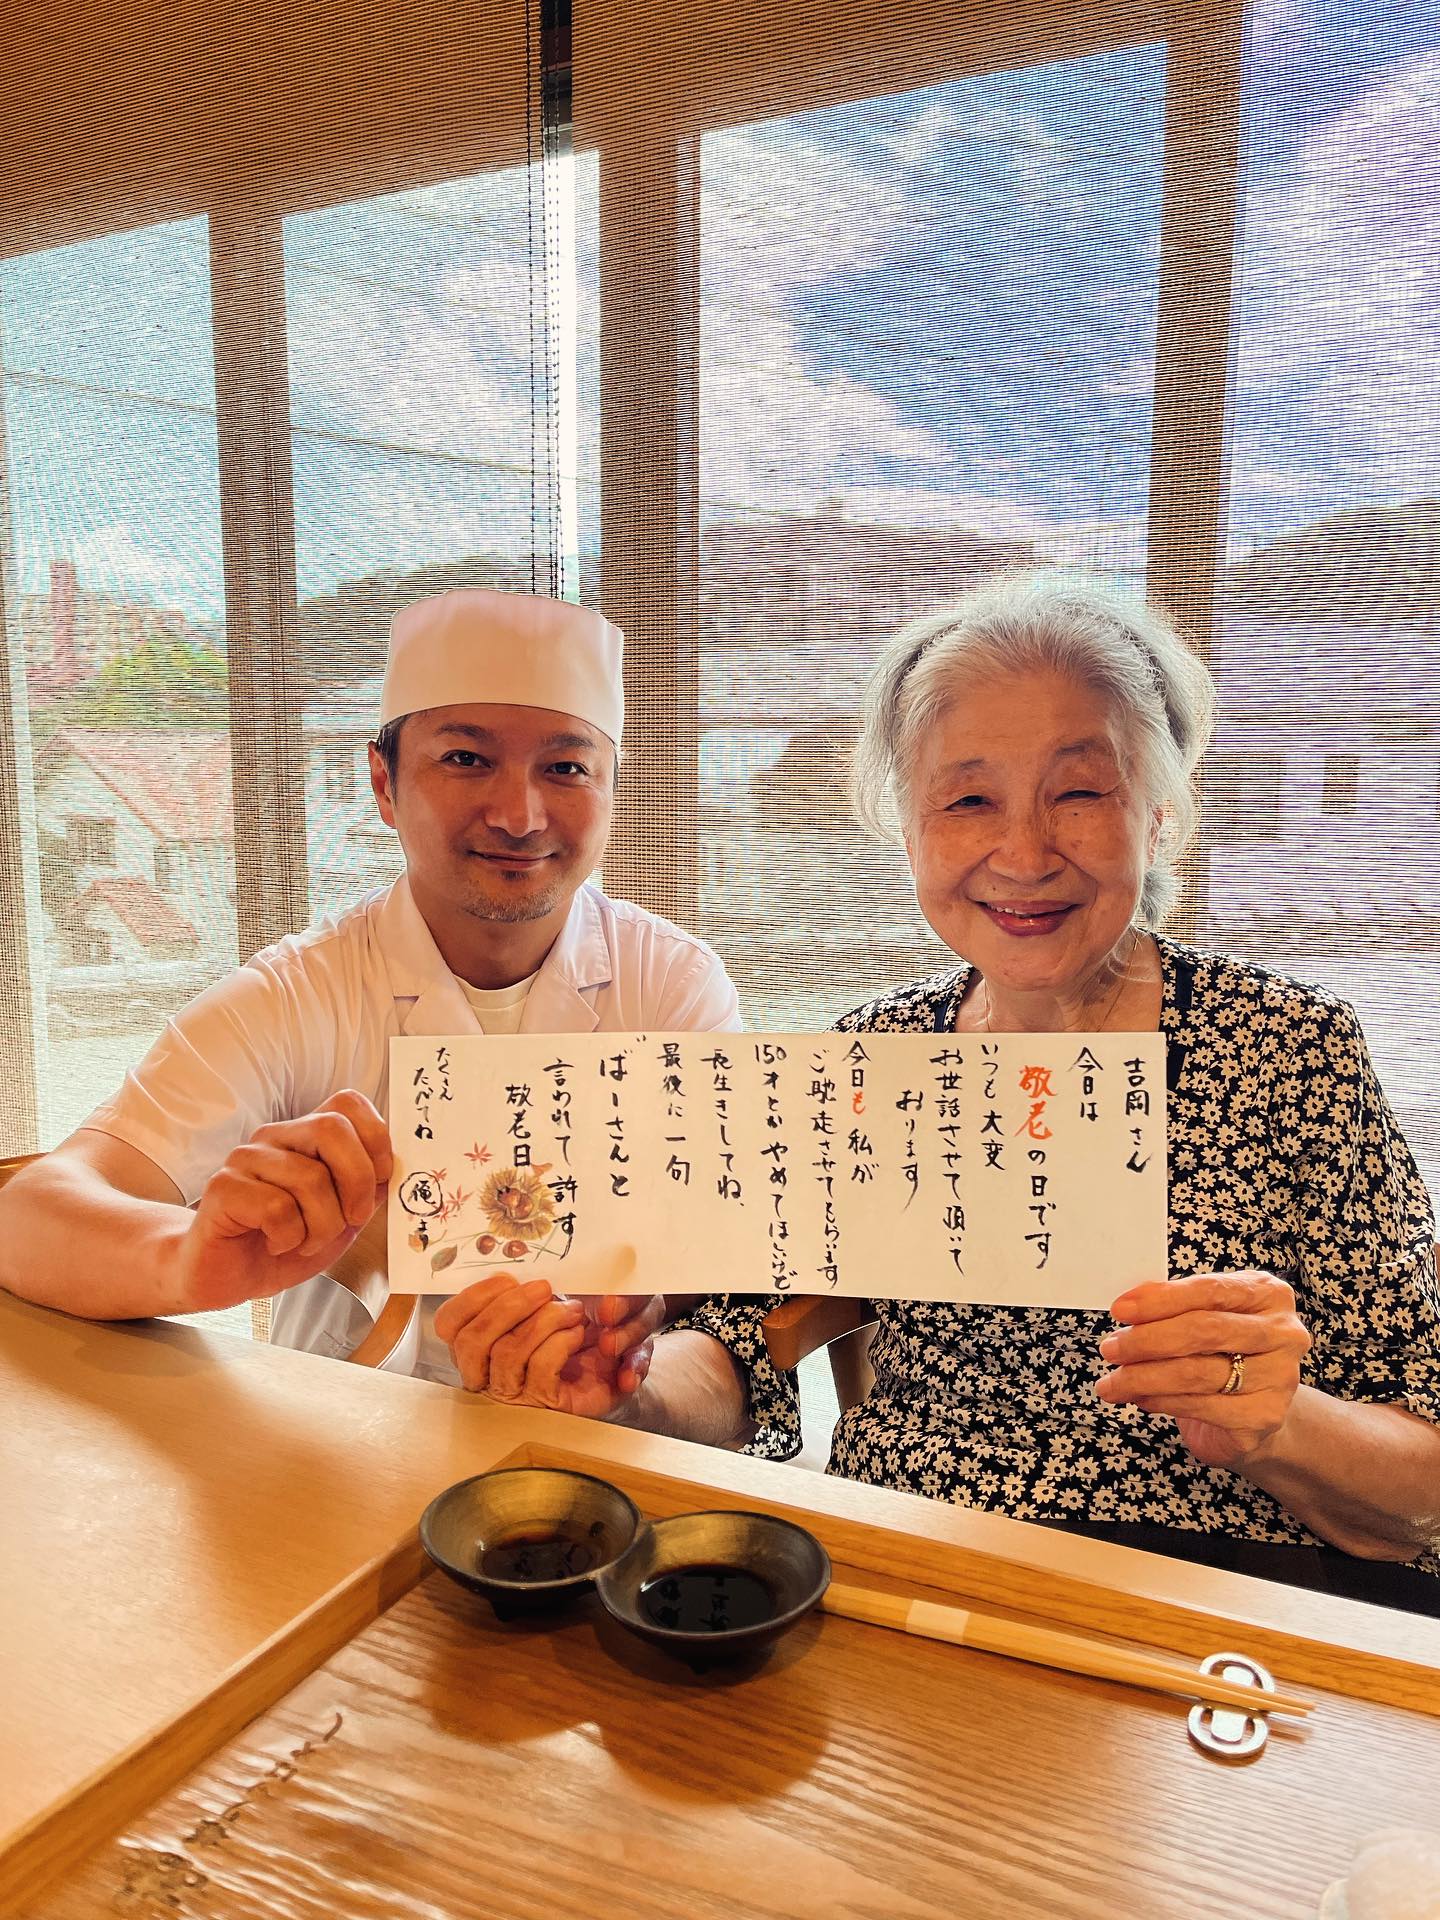 吉岡さん
今日は
敬老の日です
いつも大変
お世話させて頂いて
おります
今日も私が
ご馳走させてもらいます
150才とかやめてほしいけど
長生きしてね、
最後に一句
ばーさんと
言われて許す
敬老日
たくさん
たべてね
俺より